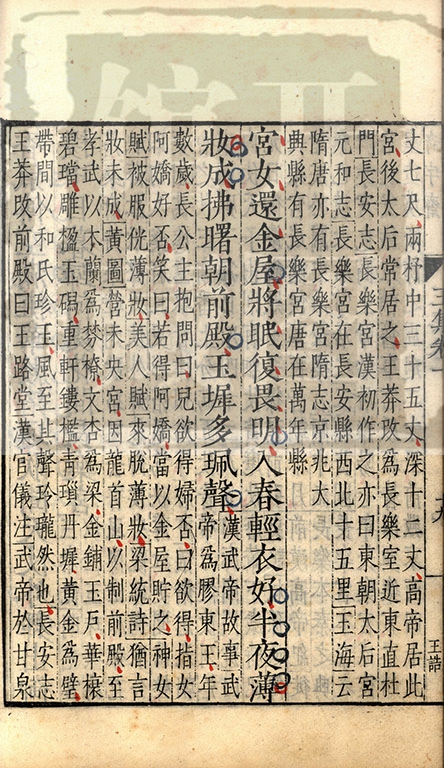 丈七尺兩杼中三十五丈深十二丈高帝居此
宮後太后常居之王莽攺為長樂室近東直杜
門長安志長樂宮漢初作之亦曰東朝太后宮
元和志長樂宮在長安縣西北十五里玉海云
隋唐亦有長樂宮隋志京兆大
興縣有長樂宮唐在萬年縣
宮女還金屋將眠復畏明入春輕衣好半夜薄
妝成拂曙朝前殿玉墀多珮聲
漢武帝故事武
帝為膠東王年
數歲長公主抱問曰兒欲得婦否曰欲得指女
阿嬌好否笑曰若得阿嬌當以金屋貯之神女
賦被服侻薄妝美人賦來脫薄妝梁統詩猶言
妝未成黃圖營未央宮因龍首山以制前殿至
孝武以木蘭為棼橑文杏為梁金鋪玉戶華榱
碧璫雕楹玉磶重軒鏤檻青瑣丹墀黃金為壁
帶間以和氏珍玉風至其聲玲瓏然也長安志
王莽攺前殿曰王路堂漢官儀注武帝於甘泉
王誥